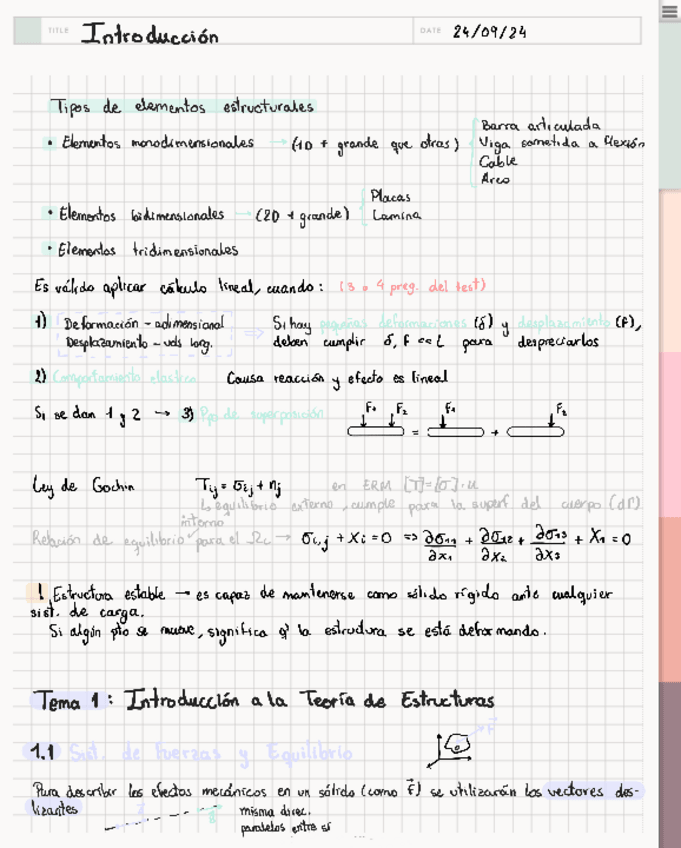 TITLE Introducción DATE 24/09/24
Tipos de elementos estructurales
• Elementos monodimensionales → (1D + grande que otras) Barra articulada
Viga sometida a flexión
Cable
Arco
• Elementos bidimensionales → (2D + grande) Placas
Lamina
• Elementos tridimensionales
Es válido aplicar cálculo lineal, cuando: (3 o 4 preg. del test)
1) Deformación - adimensional
Desplazamiento - uds long.
⇒ Si hay pequeñas deformaciones (δ) y desplazamiento (f),
deben cumplir δ, f << L para despreciarlos
2) Comportamiento elastico Causa reacción y efecto es lineal
Si se dan 1 y 2 → 3) Ppo de superposición
F₁ F₂ = F₁ + F₂
Ley de Cochin Tij = σij + nj en ERM [T]=[σ]·u
↳ equilibrio externo, cumple para la superf del cuerpo (dΓ)
interno
Relación de equilibrio para el Ωc → σi,j + Xi = 0 => ∂σ11/∂x1 + ∂σ12/∂x2 + ∂σ13/∂x3 + X1 = 0
! Estructura estable → es capaz de mantenerse como sólido rígido ante cualquier
sist. de carga.
Si algún pto se mueve, significa q' la estructura se está deformando.
Tema 1: Introducción a la Teoría de Estructuras
1.1 Sist. de Fuerzas y Equilibrio
Para describir los efectos mecánicos en un sólido (como F) se utilizarán los vectores des-
lizantes
misma direc.
paralelos entre sí